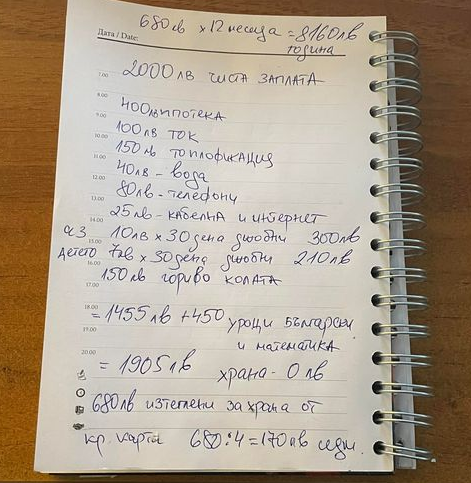 680лв x 12 месеца = 8160лв
Дата / Date: година
7.00 2000лв чиста заплата
8.00
9.00 400лв ипотека
10.00 100лв ток
11.00 150лв топлофикация
12.00 40лв - вода
13.00 80лв - телефони
14.00 25лв - кабелна и интернет
аз 10лв x 30 дена джобни 300лв
15.00
детето 7лв x 30 дена джобни 210лв
16.00
17.00 150лв гориво колата
18.00
= 1455лв + 450 уроци български
19.00
и математика
20.00
= 1905лв храна - 0 лв
680лв изтеглени за храна от
кр. карта 680:4=170лв седм.